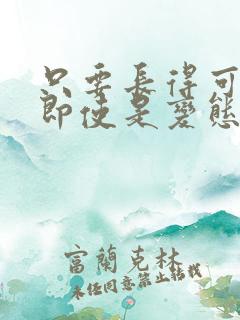 只要長得可
即使是變態
富蘭克林
未經同意禁止轉載